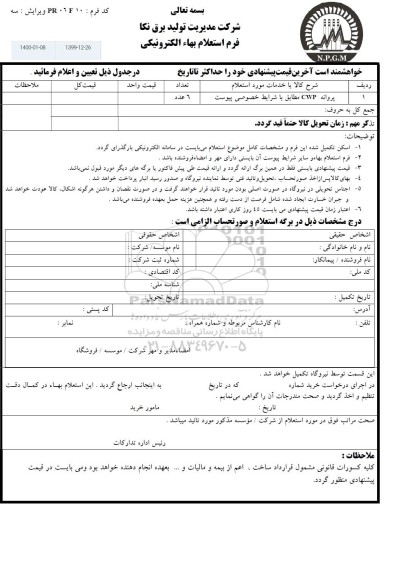 بسمه تعالی
کد فرم : PR ۰۶ F ۱۰ ویرایش : سه
شرکت مدیریت تولید برق نکا
فرم استعلام بهاء الکترونیکی
1400-01-08
1399-12-26
N.P.G.M
خواهشمند است آخرین قیمت پیشنهادی خود را حداکثر تا تاریخ درجدول ذیل تعیین و اعلام فرمائید .
ردیف شرح کالا یا خدمات مورد استعلام تعداد قیمت واحد قیمت کل ملاحظات
۱ پروانه CWP مطابق با شرایط خصوصی پیوست ۶ عدد
جمع کل به حروف:
تذکر مهم : زمان تحویل کالا حتماً قید گردد.
توضیحات:
۱- اسکن تکمیل شده این فرم و مشخصات کامل موضوع استعلام می‌بایست در سامانه الکترونیکی بارگذاری گردد.
۲- فرم استعلام بهاءو سایر شرایط پیوست آن بایستی دارای مهر و امضاءفروشنده باشد .
۳- قیمت پیشنهادی بایستی فقط در همین برگ ارائه گردد و ارائه قیمت طی پیش فاکتور یا برگه های دیگر مورد قبول نمی‌باشد.
۴- بهای کالاپس ازاخذ صورتحساب ،تحویل‌وتائید فنی توسط نماینده نیروگاه و صدور رسید انبار پرداخت خواهد شد .
۵- اجناس تحویلی در نیروگاه در صورت اصلی بودن مورد تائید قرار خواهند گرفت و در صورت نقصان و داشتن هرگونه اشکال، کالا عودت خواهد شد
و جبران خسارت ایجاد شده شامل فرصت از دست رفته و همچنین هزینه حمل بعهده فروشنده می‌باشد .
۶- اعتبار زمان قیمت پیشنهادی می بایست ۴۵ روز کاری اعتبار داشته باشد.
درج مشخصات ذیل در برگه استعلام و صورتحساب الزامی است :
اشخاص حقیقی اشخاص حقوقی
نام و نام خانوادگی : نام موسسه/ شرکت :
نام فروشنده / پیمانکار: شماره ثبت شرکت :
کد ملی: کد اقتصادی :
شناسه ملی:
تاریخ تکمیل : تاریخ تحویل:
آدرس: کد پستی :
تلفن : نام کارشناس مربوطه و شماره همراه : نمابر :
ParsNamadData
پایگاه اطلاع رسانی مناقصه و مزایده
۰۲۱-۸۸۳۴۹۶۷۰-۵
امضاءمدیر و مهر شرکت / موسسه / فروشگاه
این قسمت توسط نیروگاه تکمیل خواهد شد .
در اجرای درخواست خرید شماره که در تاریخ به اینجانب ارجاع گردید . این استعلام بهاء در کمال دقت
تنظیم و اخذ گردید و صحت مندرجات آن را گواهی می‌نمایم .
تاریخ : مامور خرید
صحت مراتب فوق در مورد استعلام از شرکت / مؤسسه مذکور مورد تائید میباشد .
رئیس اداره تدارکات
ملاحظات :
کلیه کسورات قانونی مشمول قرارداد ساخت ، اعم از بیمه و مالیات و ... بعهده انجام دهنده خواهد بود ومی بایست در قیمت
پیشنهادی منظور گردد.